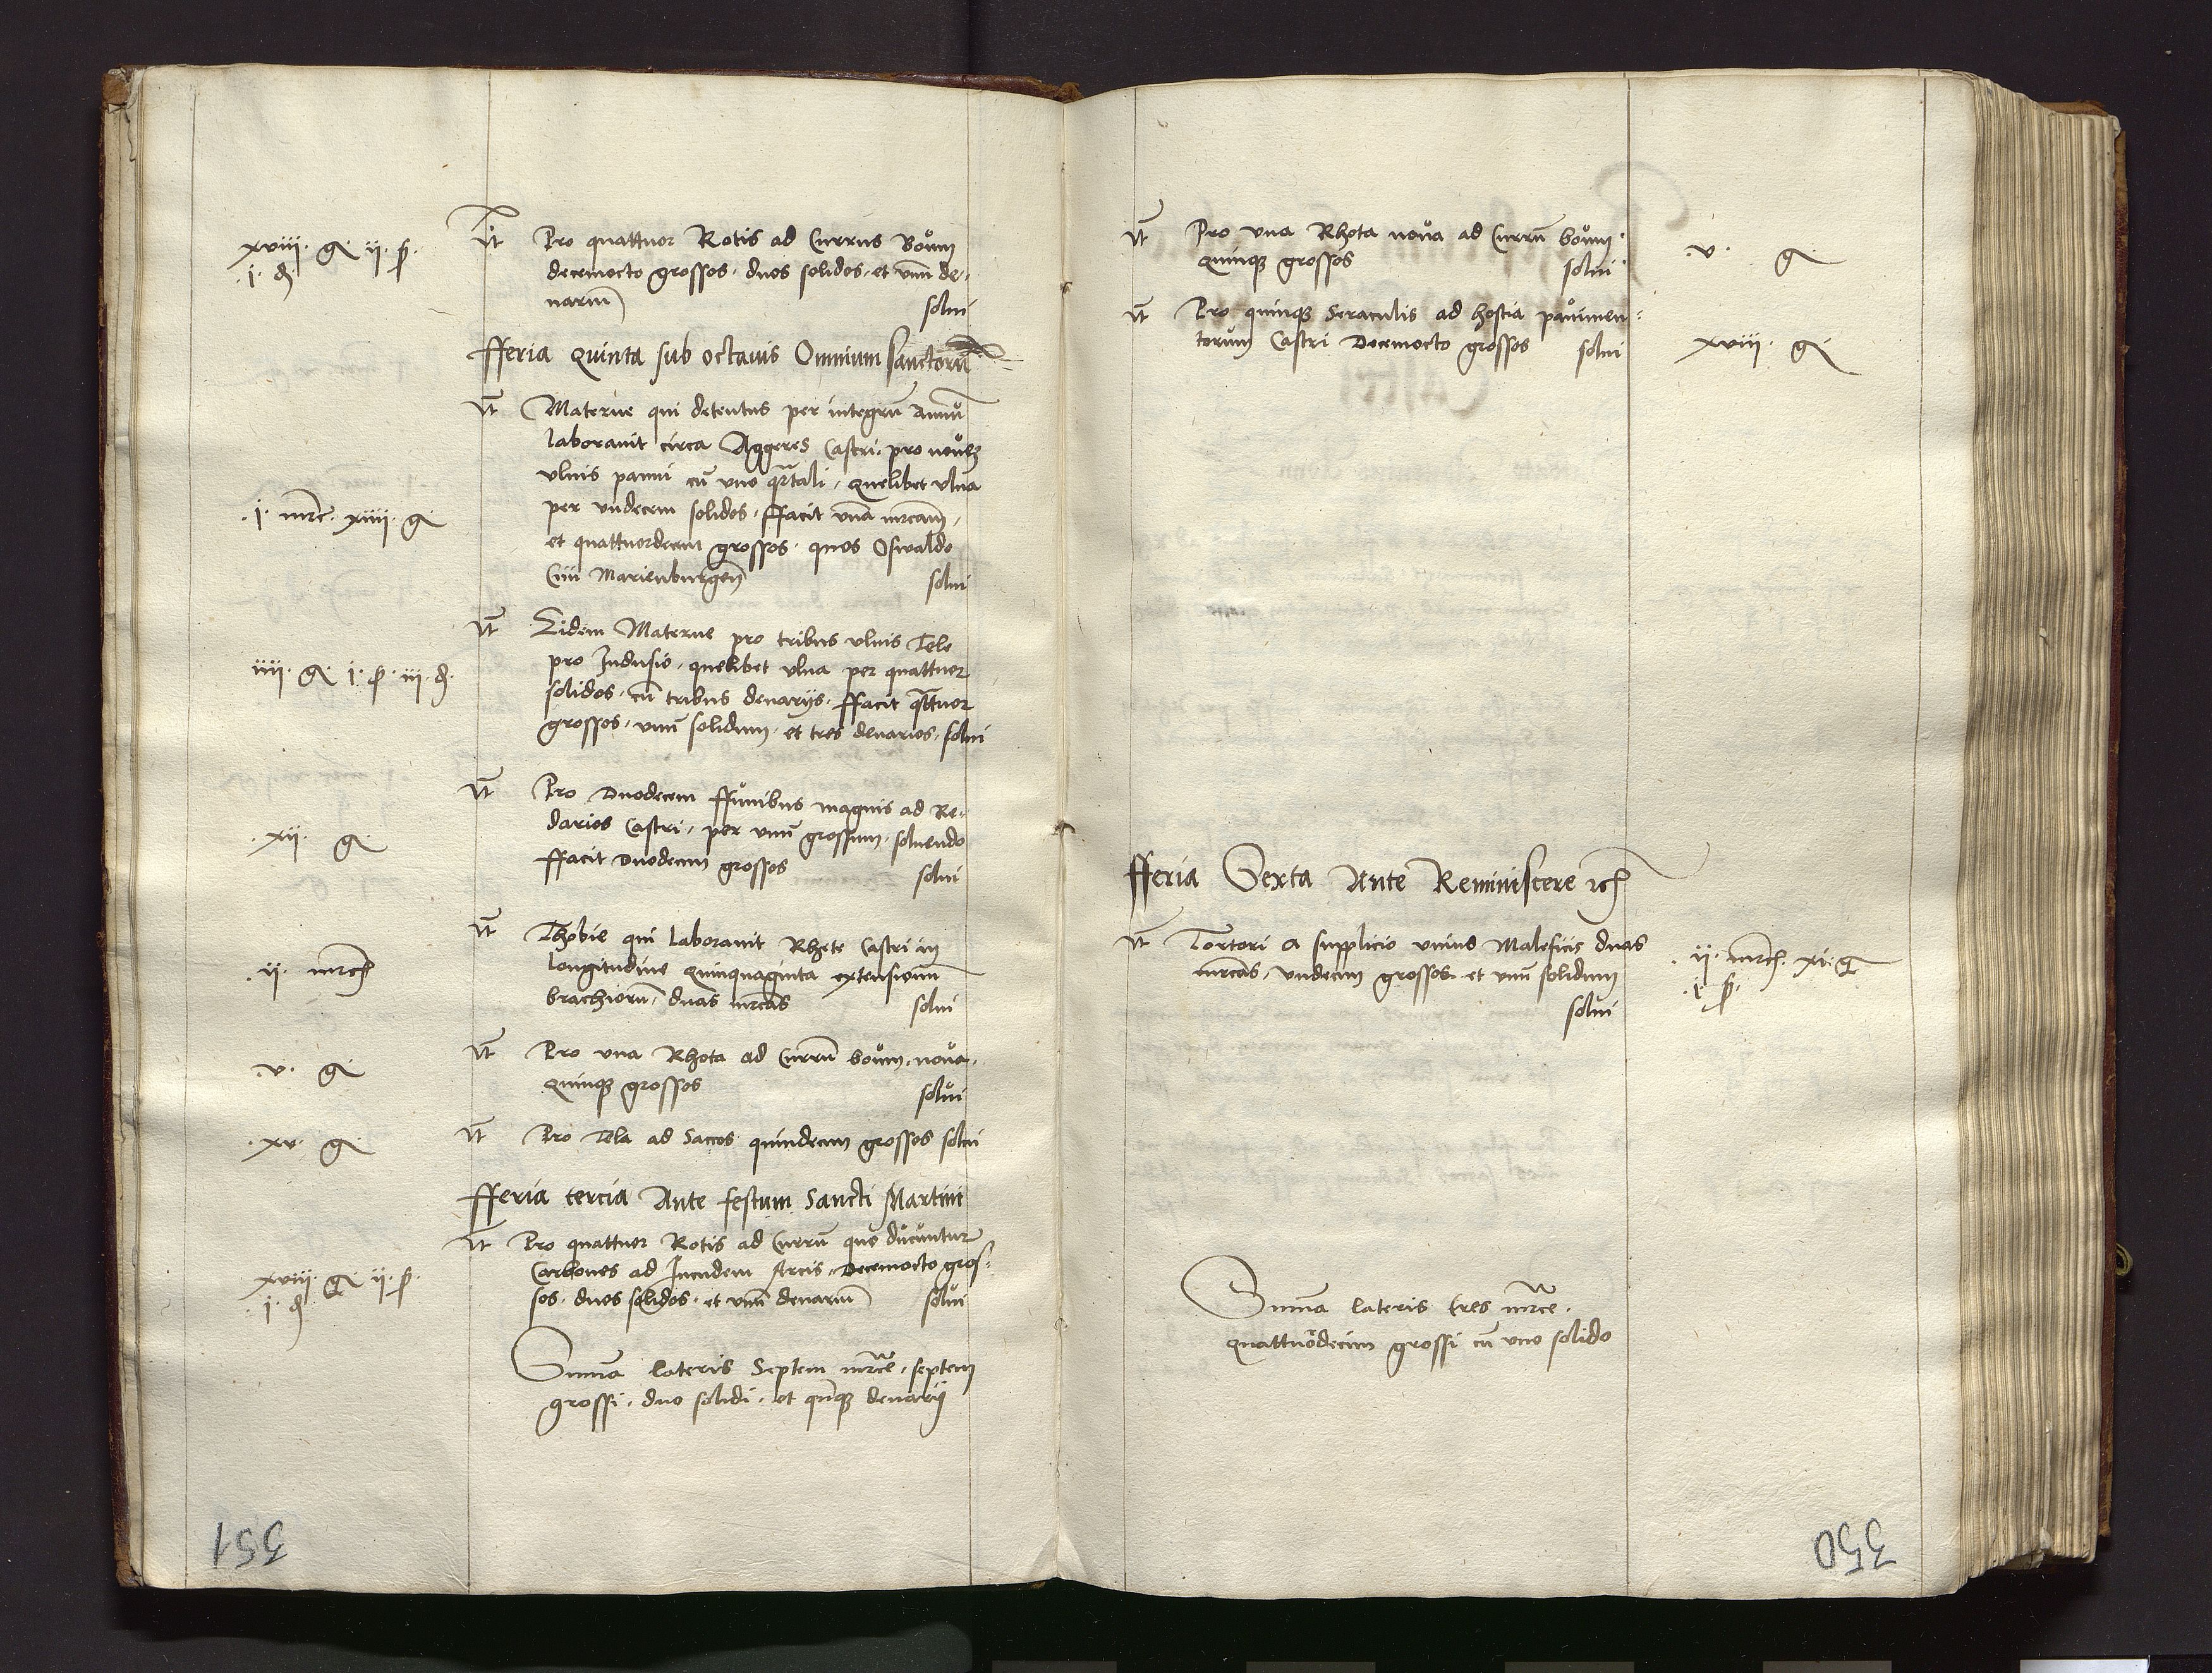 xviii. g. ii. ß.
.i. d.
It Pro quattuor Rotis ad Currus Boum
decemocto grossos. duos solidos. et vnū de-
nariū solui
fferia quinta sub octauis Omnium sanctorū
It Materne qui detentus per integrū annū
laborauit circa Aggeres Castri. pro nouē
vlnis panni cū vno qrtali. quelibet vlna
per vndecim solidos. ffacit vnā mrcam.
.i. mrc. xiiii. g.
et quattuordecim grossos. quos Oswaldo
Ciui Marienburgeñ solui
It Eidem Materne pro tribus vlnis Tele
pro Indusio. quelibet vlna per quattuor
iiii. g. i. ß. iii. d.
solidos. cū tribus denarijs. ffacit qttuor
grossos. vnū solidum. et tres denarios. solui
It Pro Duodecem ffunibus magnis ad Re-
darios Castri. per vnū grossum. soluendo
.xii. g.
ffacit Duodecim grossos solui
It Thobie qui laborauit Rhete Castri in
longitudine quinquaginta extensionū
.ii. mrc
brachiorū. duas mrcas solui
It Pro vna Rhota ad Currū boum. noua.
.v. g.
quinque grossos solui
.xv. g.
It Pro Tela ad Saccos quindecim grossos solui
fferia tercia Ante festum Sancti Martini
It Pro quattuor Rotis ad Currū quo ducuntur
Carbones ad Incudem Arcis. Decemocto gros-
xviii. g. ii. ß.
.i. d.
sos. duos solidos. et vnū denariū solui
Summa lateris Septem mrce. septem
grossi. duo solidi. et qnque denarij
351
It Pro vna Rhota noua ad Currū boum.
quinque grossos solui
.v. g.
It Pro quinque Seraculis ad hostia pauimen-
torum Castri Decemocto grossos solui
xviii. g.
fferia Sexta Ante Reminiscere
It Tortori a supplicio vnius Maleficis duas
mrcas. vndecim grossos. et vnū solidum
solui
.ii. mrc. xi. g.
.i. ß.
Summa lateris tres mrce.
quattuordecim grossi cū vno solido
350